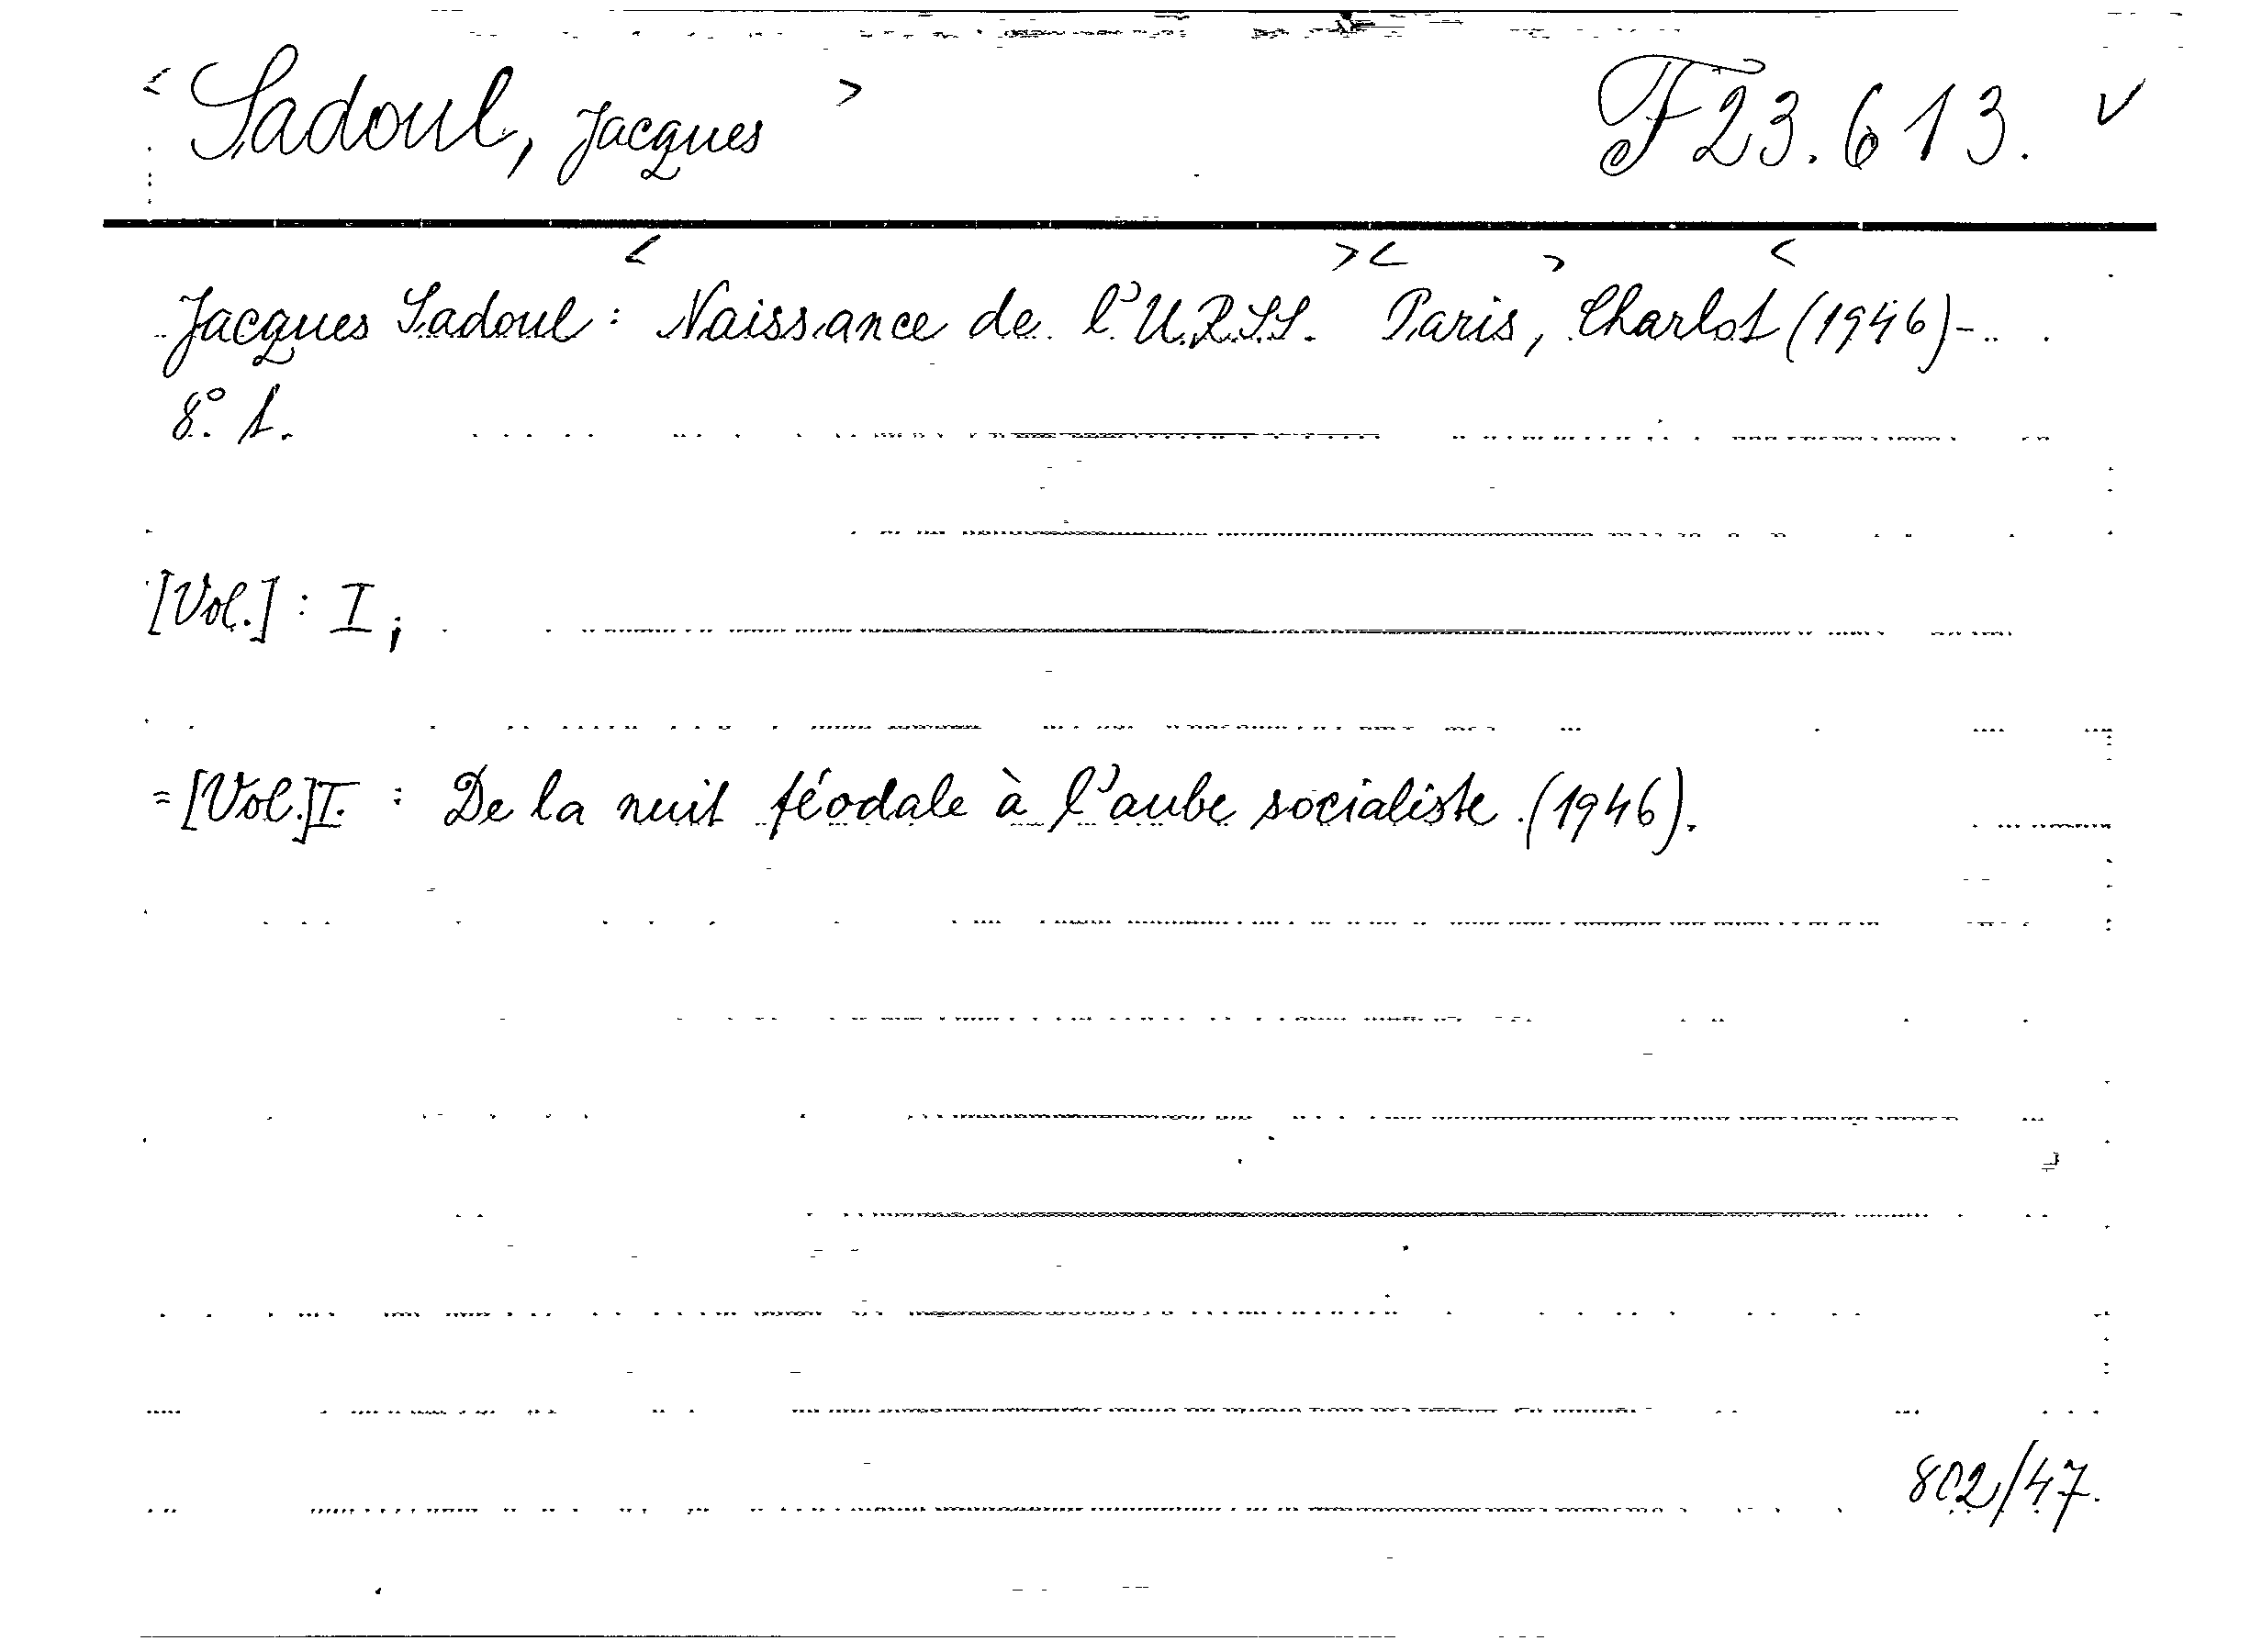 < Sadoul, Jacques > F 23.613. ✓
< >< > <
Jacques Sadoul : Naissance de l'U.R.S.S. Paris, Charlot (1946)-..
8° 1.
[Vol.] : I ;
= [Vol.] I. : De la nuit féodale à l'aube socialiste. (1946).
802/47.